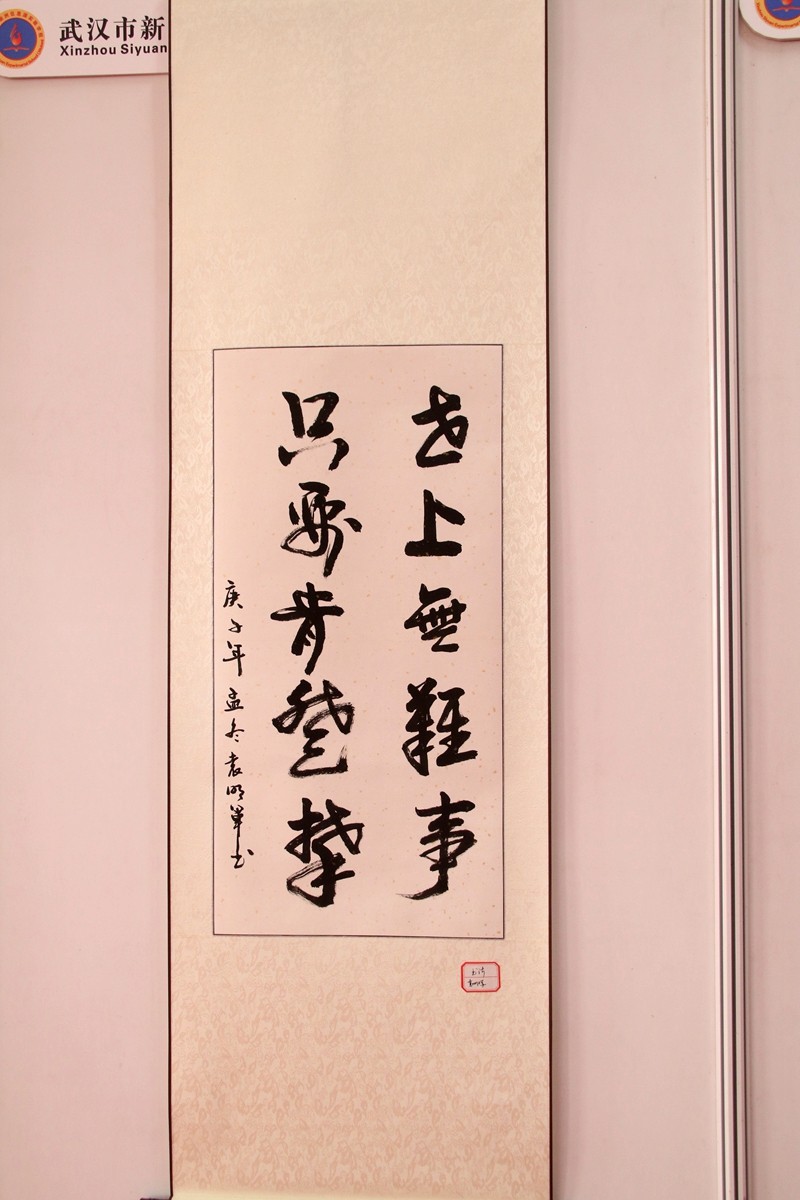 武汉市新
Xinzhou Siyuan
世上無難事
只要肯登攀
庚子年孟冬袁明軍书